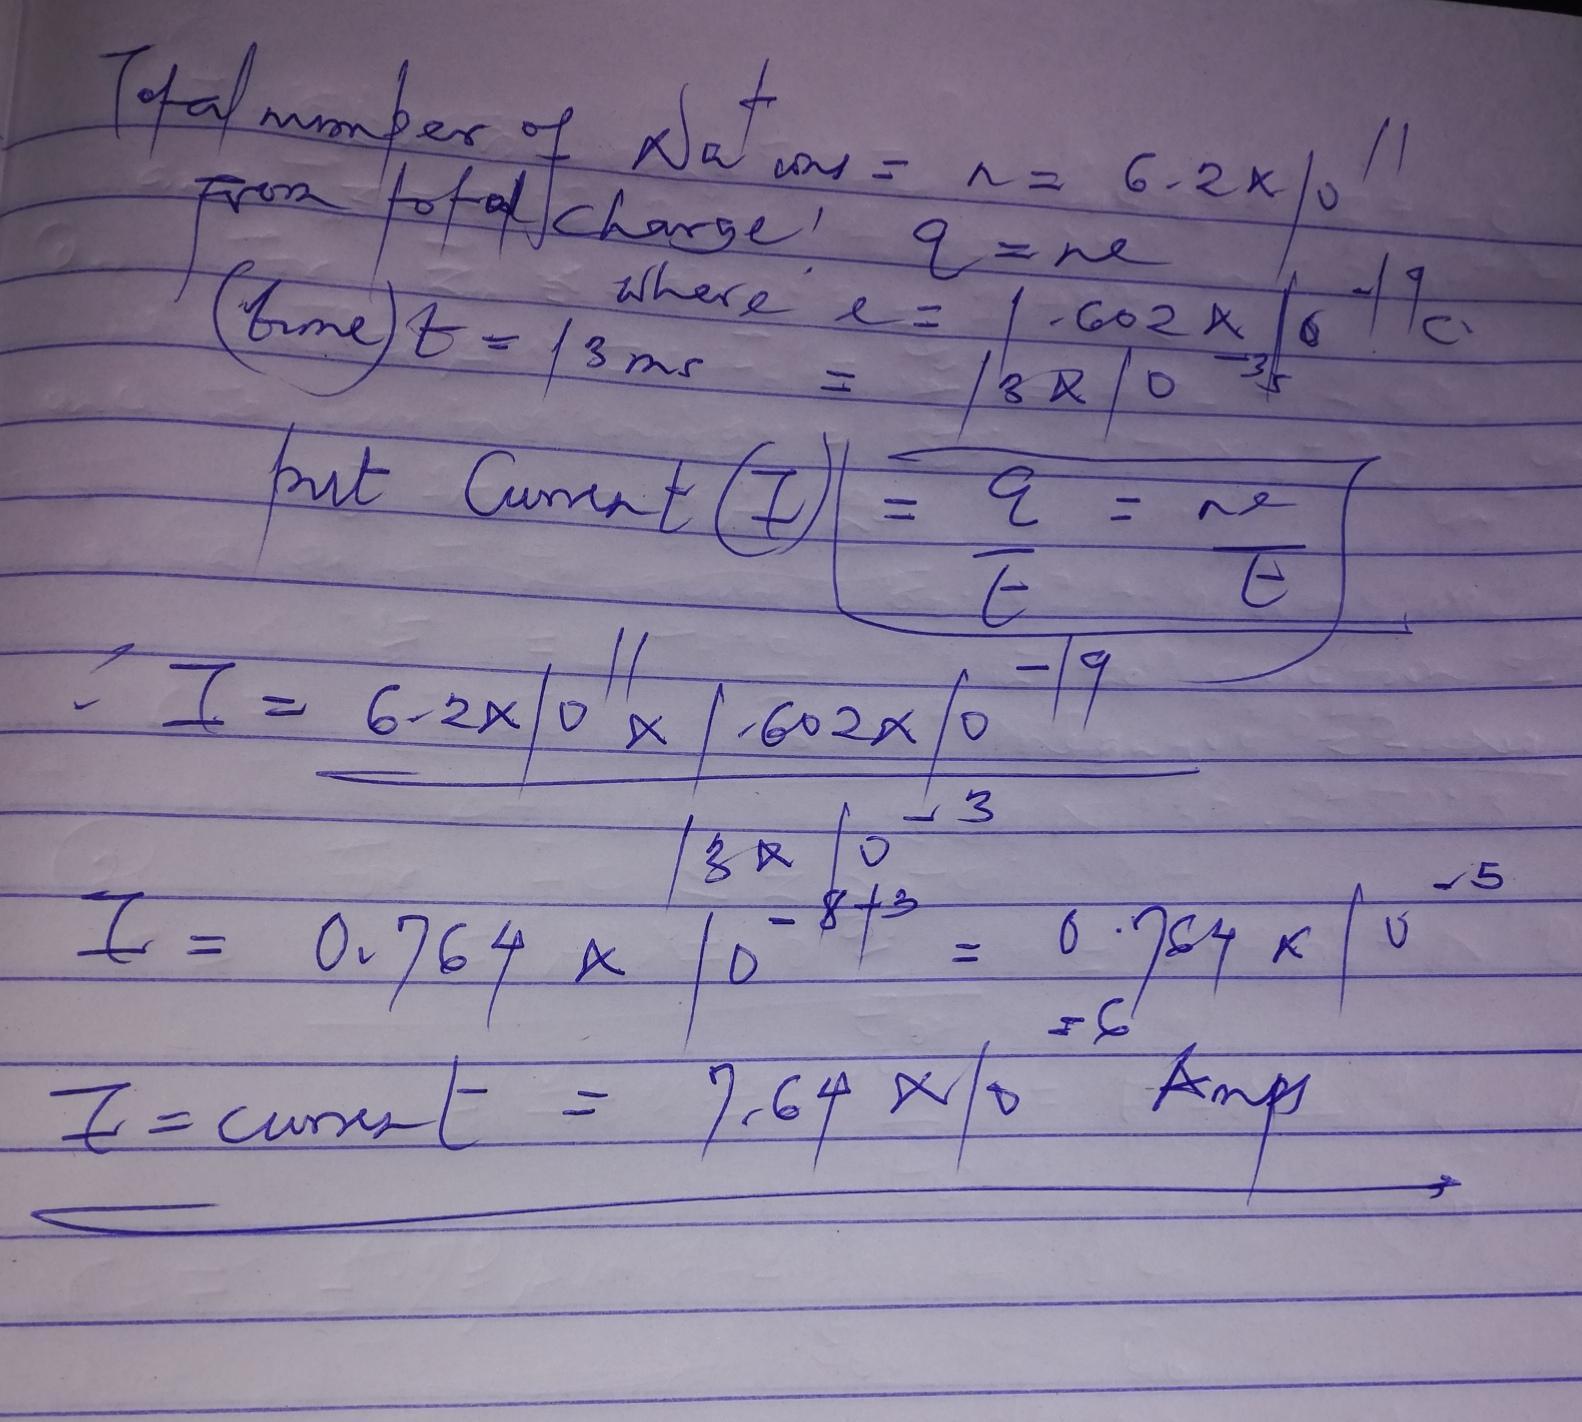 Total number of Na⁺ ions = n = 6.2 x 10¹¹
From total charge, q = ne
where e = 1.602 x 10⁻¹⁹ C.
(time) t = 13 ms = 13 x 10⁻³ s
but Current (I) = q/t = ne/t
∴ I = 6.2 x 10¹¹ x 1.602 x 10⁻¹⁹
13 x 10⁻³
I = 0.764 x 10⁻⁸⁺³ = 0.764 x 10⁻⁵
I = current = 7.64 x 10⁻⁶ Amps